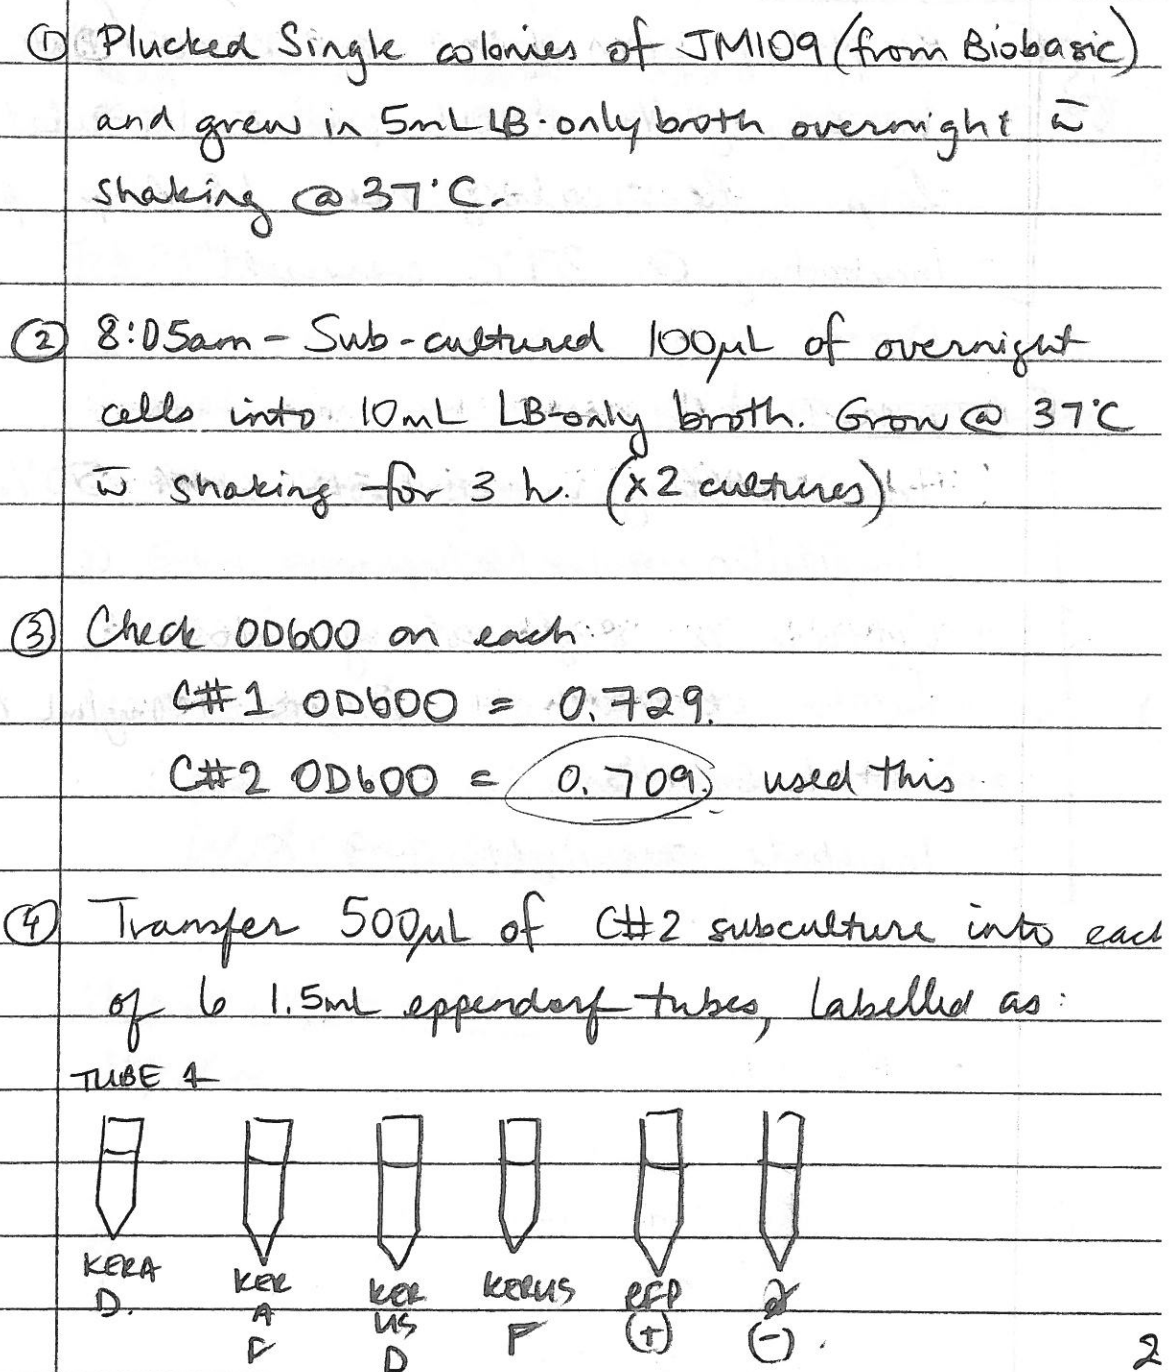 ① Plucked Single colonies of JM109 (from Biobasic)
and grew in 5mL LB-only broth overnight w̄
shaking @ 37°C.
② 8:05am - Sub-cultured 100μL of overnight
cells into 10mL LB-only broth. Grow @ 37°C
w̄ shaking for 3 h. (x2 cultures)
③ Check OD600 on each:
C#1 OD600 = 0.729.
C#2 OD600 = 0.709. used this
④ Transfer 500μL of C#2 subculture into each
of 6 1.5mL eppendorf tubes, labelled as:
TUBE 1
KERA D.
KER A F
KER US D
KERUS F
RFP (+)
(-)
2